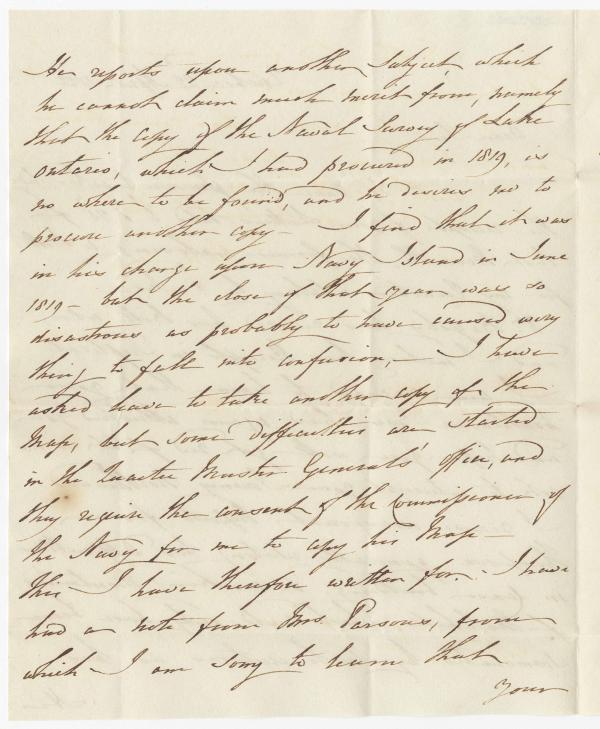 He reports upon another subject, which
he cannot claim much merit from, namely
that the copy of the Naval Survey of Lake
Ontario, which I had procured in 1819, is
no where to be found, and he desires me to
procure another copy – I find that it was
in his charge upon Navy Island in June
1819 – but the close of that year was so
disastrous as probably to have caused every
thing to fall into confusion, – I have
asked leave to take another copy of the
Map, but some difficulties are started
in the Quarter Master Generals' office, and
they require the consent of the Commissioner of
the Navy for me to copy his Map –
this I have therefore written for. – I have
had a note from Mrs. Parsons, from
which I am sorry to learn that
your